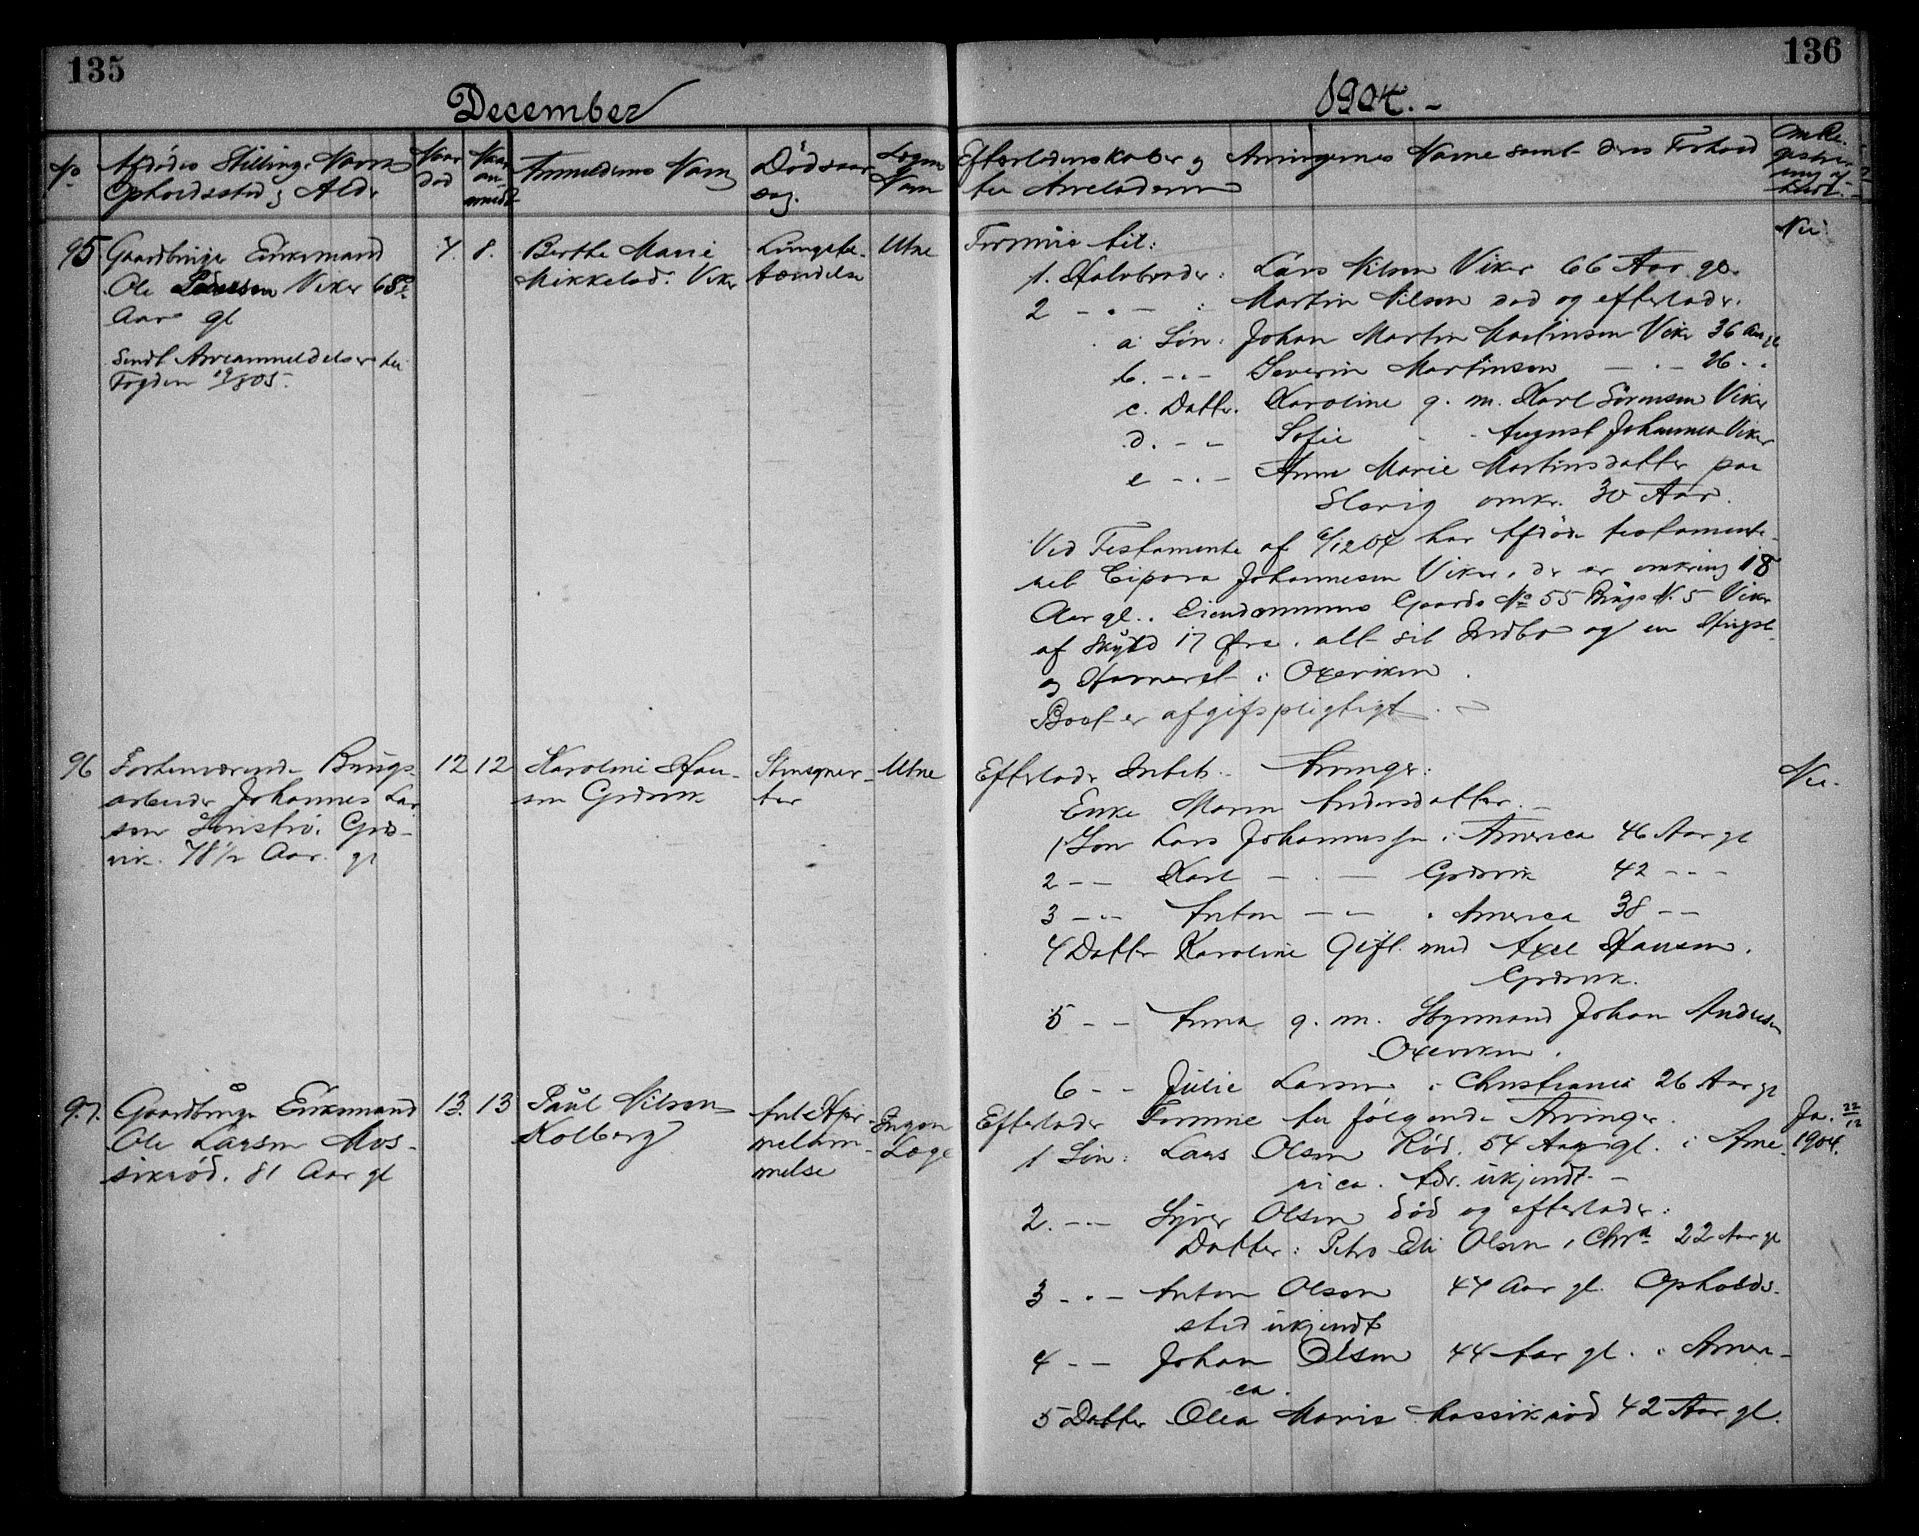 135
136
December
1904. -
No
Afdødes Stilling, Navn
Opholdssted og Alder
Naar
død
Naar
an-
meldt
Anmelderens Navn
Dødsaar-
sag.
Sogn
Navn
Efterladenskaber og Arvingernes Navne samt deres Forhold
til Arveladeren
95
Gaardbruger Enkemand
Ole Viker
Aar gl
Sendt Arveanmeldelse til
Fogden
7. 8.
Berthe Marie
Mikkelsd. Viker
Lungebe-
tændelse
Utne
Formue til:
1. Halvbroder: Lars Nilsen Viker 66 Aar gl.
2 - " - : Martin Nilsen død og efterlader.
a Søn: Johan Martin Martinsen Viker 36 Aar gl
b. - " - Severin Martinsen - " - 26 " "
c. Datter. Karoline g. m. Karl Sørensen Viker
d. - - Sofie - - August Johannesen Viker
e - " - Anne Marie Martinsdatter paa
omkr. 30 Aar.
Nei
Ved Testamente af 6/12 04 har Afdøde testamente-
ret Johannesen Viker, der er omkring 18
Aar gl. Eiendommen Gaards No 55 Brugs N. 5 Viker
af Skyld 17 Øre, alt sit Indbo og en
og i Oxeviken
Boet er afgifspligtigt.
96
Forhenværende Brugs-
arbeider Johannes Lar
sen Grds-
vik. 78 1/2 Aar. gl
12 12
Karoline Han-
sen Gresvik
Utne
Efterlader Intet. Arvinger:
Enke Maren Andersdatter. -
1 Søn Lars Johannessen i America 46 Aar gl
2 - - Karl - " - Gresvik 42 - - -
3 - " - Anton - - i America 38 - -
4 Datter Karoline Gift med Axel Hansen,
Gresvik.
5 - - Anna g. m. Styrmand Johan Andresen
Oxeviken.
6 - - Julie Larsen i Christiania 26 Aar gl
Nei.
97.
Gaardbruger Enkemand
Ole Larsen Mos-
sikrød. 81 Aar gl
13. 13
Paul Nilsen
Kolberg
Ingen
Læge
Efterlader Formue til følgende Arvinger.
1 Søn: Lars Olsen Rød. 54 Aar gl. i Ame-
rica. Adr. ukjendt. -
2. - " - Syver Olsen død og efterlader:
Datter: Olsen i Chra 22 Aar gl
3 - " - Anton Olsen 47 Aar gl. Opholds-
sted ukjendt
4 - - Johan Olsen 44 Aar gl. i Ameri-
ca.
5 Datter Olea Marie Mossikrød 42 Aar gl.
Ja. 22/12
1904.